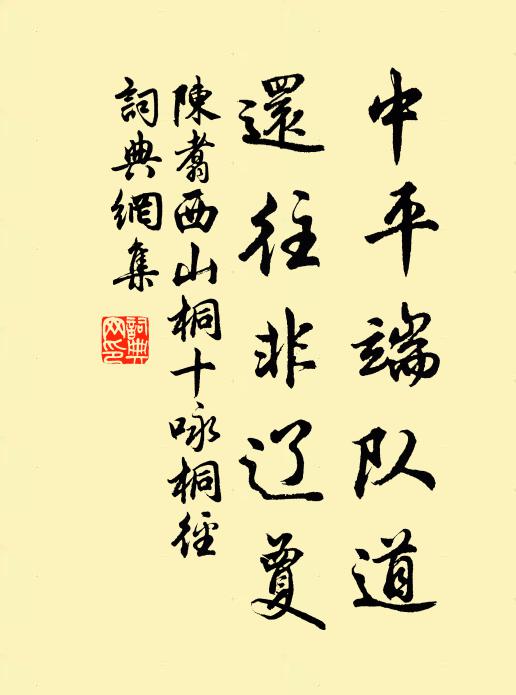 中平端队道
還往非辽夐
陳翥西山桐十咏桐徑
詞典網集
詞典
网印